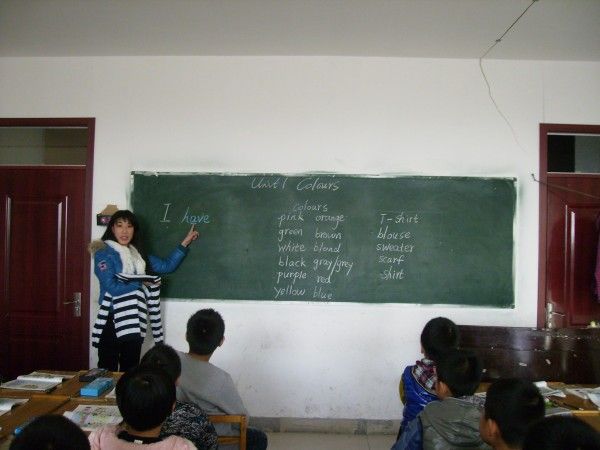 Unit 1 Colours
I have
colours
pink orange
green brown
white blond
black gray/grey
purple red
yellow blue
T-shirt
blouse
sweater
scarf
shirt